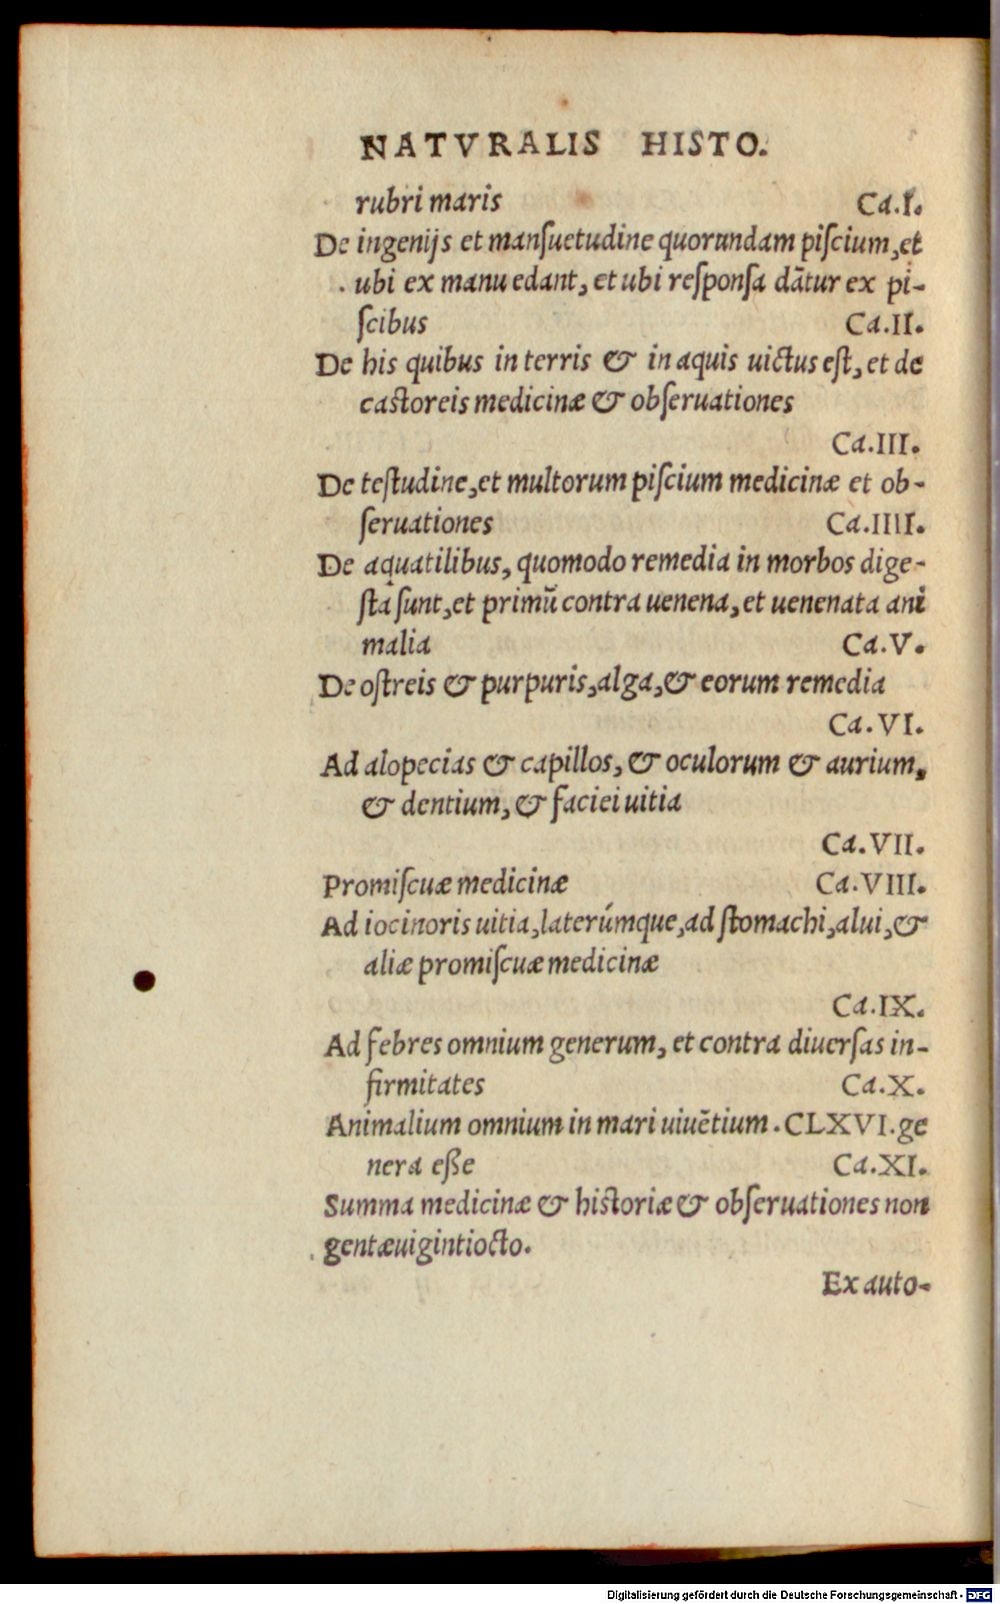 NATVRALIS HISTO.
rubri maris Ca.I.
De ingenijs et manſuetudine quorundam piſcium,et
. ubi ex manu edant, et ubi reſponſa dātur ex pi-
ſcibus Ca.II.
De his quibus in terris & in aquis uictus eſt, et de
caſtoreis medicinæ & obſeruationes
Ca.III.
De teſtudine,et multorum piſcium medicinæ et ob-
ſeruationes Ca.IIII.
De aquatilibus, quomodo remedia in morbos dige-
ſta ſunt,et primū contra uenena, et uenenata ani
malia Ca.V.
De oſtreis & purpuris,alga,& eorum remedia
Ca.VI.
Ad alopecias & capillos, & oculorum & aurium,
& dentium, & faciei uitia
Ca.VII.
Promiſcuæ medicinæ Ca.VIII.
Ad iocinoris uitia,laterúmque,ad ſtomachi,alui,&
aliæ promiſcuæ medicinæ
Ca.IX.
Ad febres omnium generum, et contra diuerſas in-
firmitates Ca.X.
Animalium omnium in mari uiuētium .CLXVI.ge
nera eße Ca.XI.
Summa medicinæ & hiſtoriæ & obſeruationes non
gentæuigintiocto.
Ex auto-
Digitalisierung gefördert durch die Deutsche Forschungsgemeinschaft - DFG